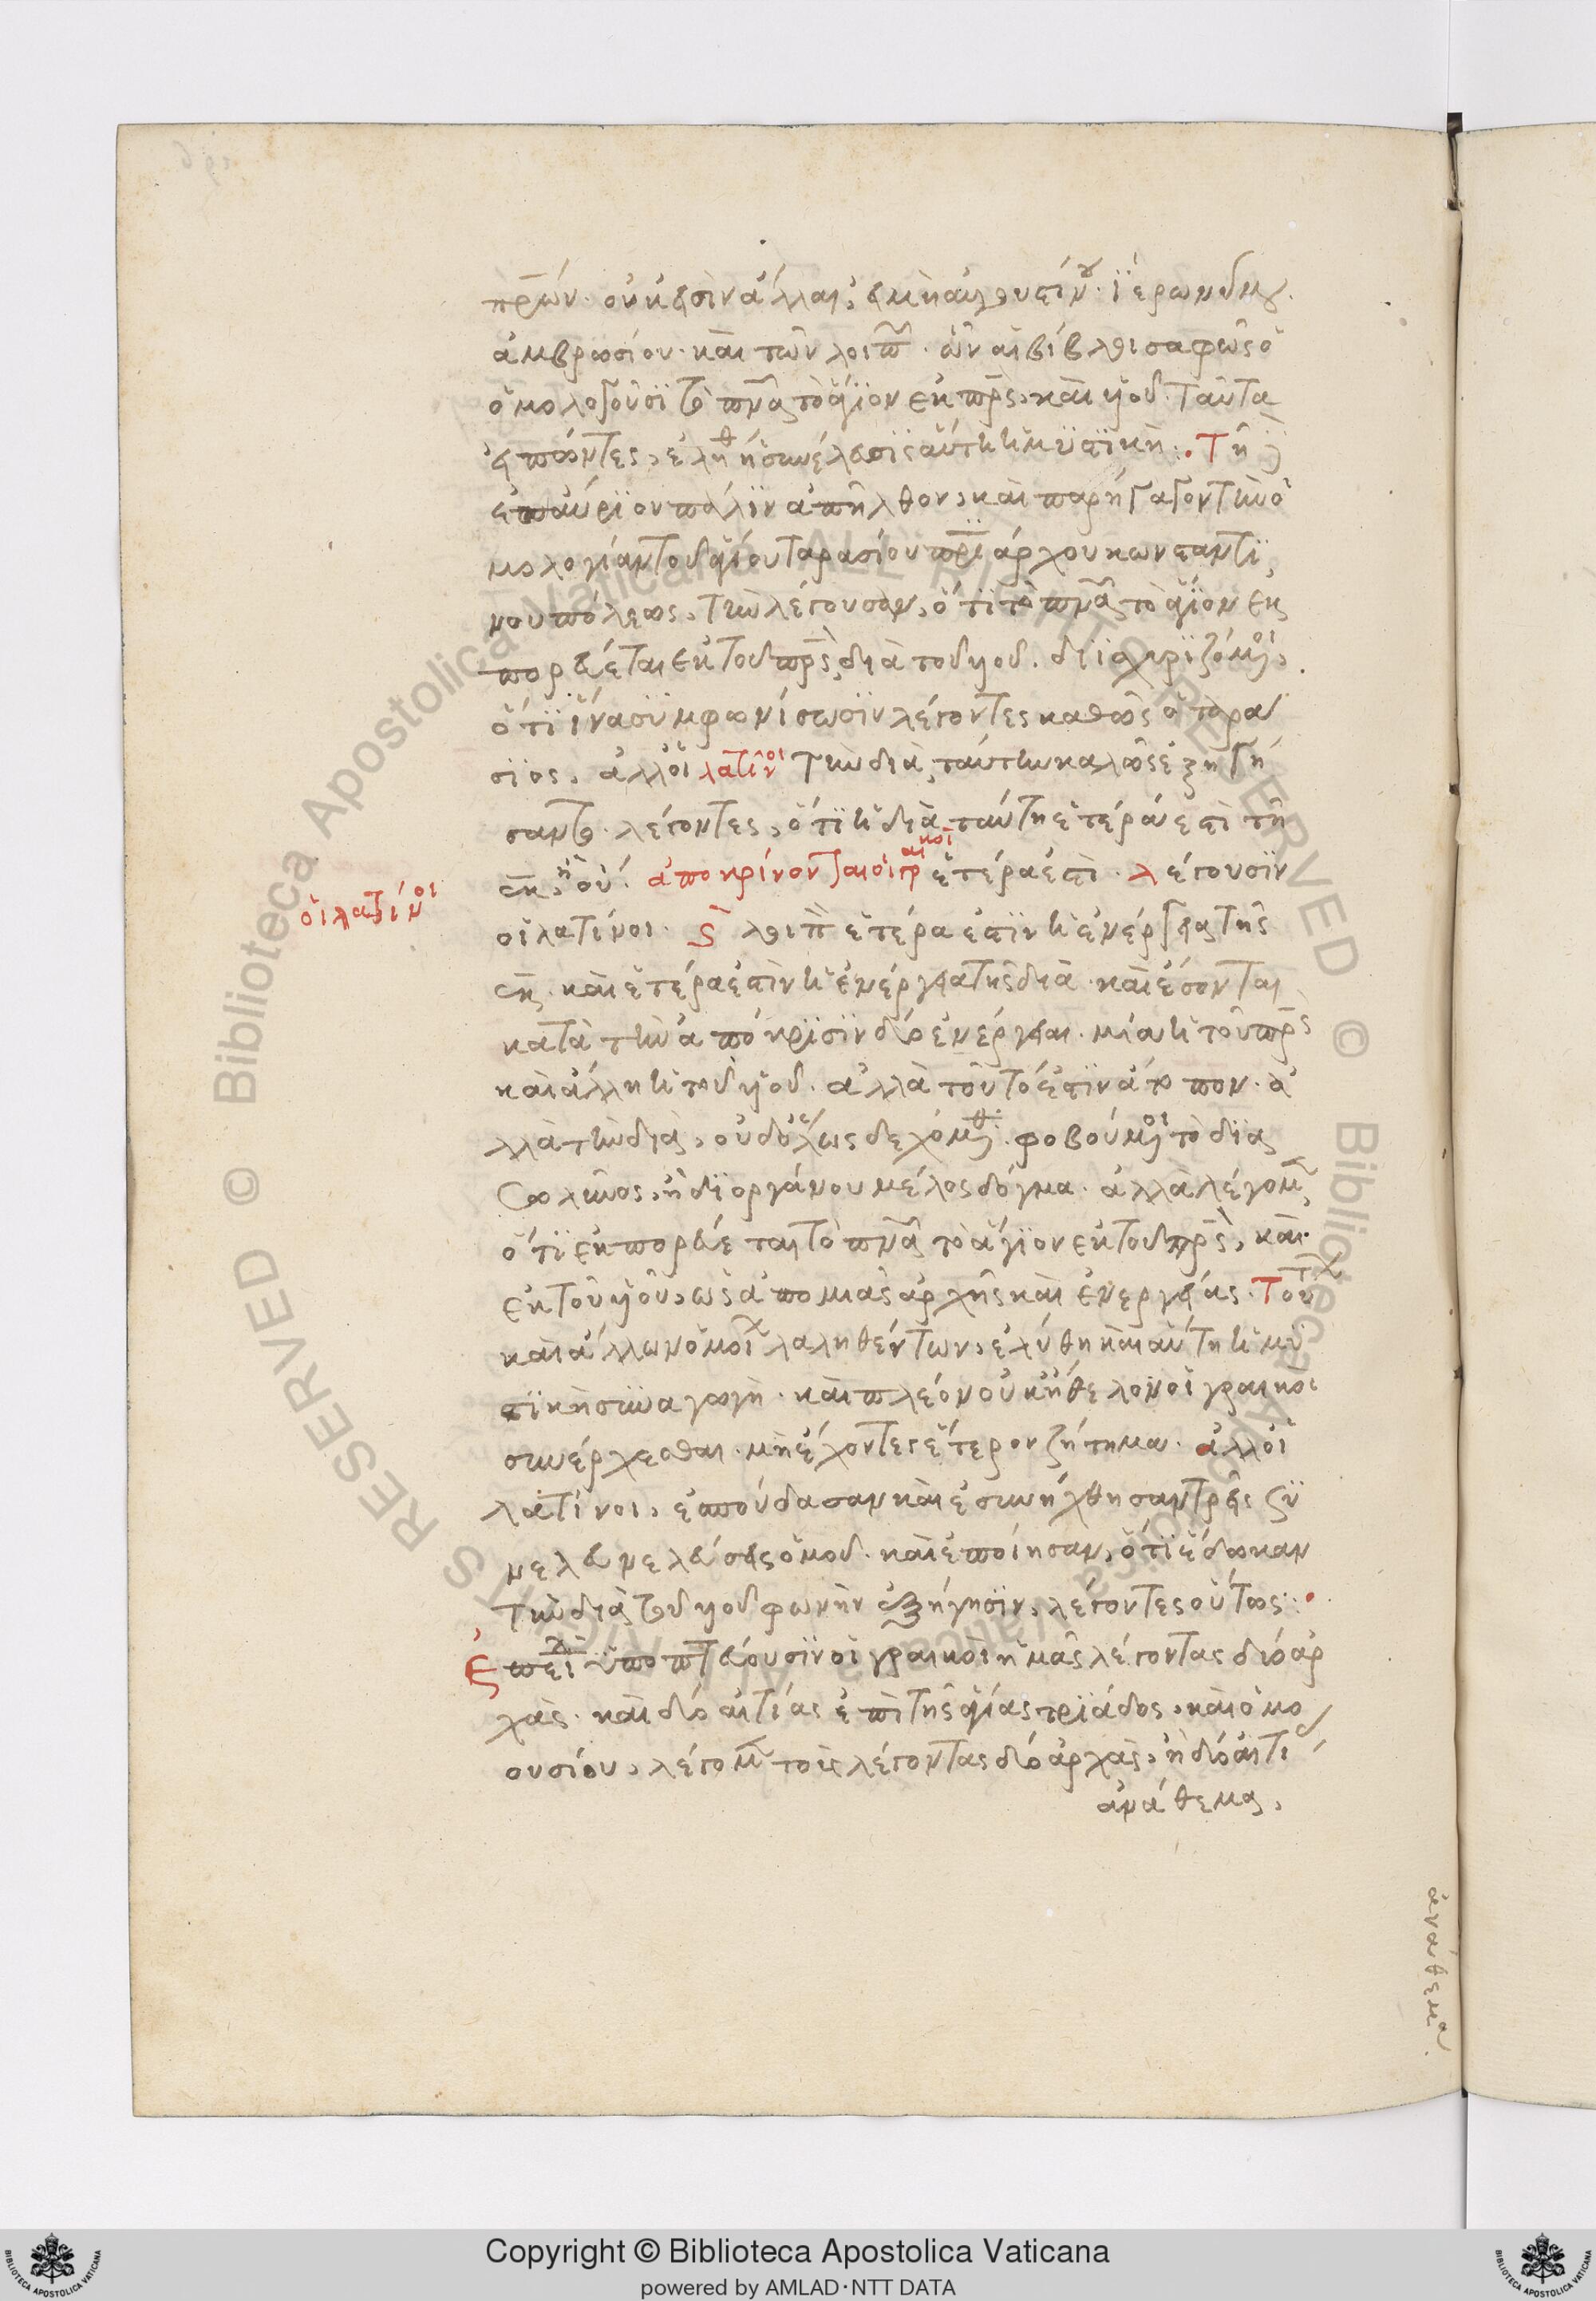 πρ̅ων. οὐκ εἰσὶν ἄλλαι, εἰ μὴ αὐγουστίνου. ϊερωνύμου.
ἀμβροσίου. καὶ τῶν λοιπ῀. ὧν αἱ βίβλοι σαφῶς ὁ
ὁμολογοῦσϊ τὸ πν̅α τὸ ἅγϊον ἐκ πρ̅ς, καὶ υἱοῦ. Ταῦτα
εἰπόντες, ἐλήθη ἡ συνέλευσϊς αὕτη ἡ μϋστϊκὴ. Τῆ
ἐπαύριον πάλϊν ἀπῆλθον, καὶ παρήγαγον τὴν ὁ
μολογίαν τοῦ ἁγίου ταρασίου πρϊάρχου κωνσταντϊ
νουπόλεως, τὴν λέγουσαν, ὅτϊ τὸ πν̅α τὸ ἅγϊον ἐκ
πορεύεται ἐκ τοῦ πρ̅ς, διὰ τοῦ υἱοῦ. δϊϊσχυρϊζόμενοι,
ὅτϊ ἵνα συμφωνίσωσϊν λέγοντες καθὼς ὁ ταρά
σϊος, ἀλλ' οἱ λατῖνοι τὴν διὰ, ταύτην καλῶς ἐξηγή
σαντο. λέγοντες, ὅτϊ ἡ διὰ, ταύτη ἑτέρα ἐστὶ τῆ
ἐκ, ἢ οὔ. ἀποκρίνονται οἱ γραικοὶ ἑτέρα ἐστὶ. λέγουσϊν
οἱ λατίνοι
οἱ λατίνοι. λοιπ̀ ἑτέρα ἐστὶν ἡ ἐνέργεια τῆς
ἐκ, καὶ ἑτέρα ἐστὶν ἡ ἐνέργεια τῆς διὰ. καὶ ἔσονται
κατὰ τὴν ἀπόκρϊσϊν δύο ἐνέργειαι. μία ἡ τοῦ πρ̅ς
καὶ ἄλλη ἡ τοῦ υἱοῦ. ἀλλὰ τοῦτό ἐστϊν ἄτοπον. ἀ
λλὰ τὴν διὰ, οὐδόλως δεχόμεθα. φοβούμενοι τὸ δϊὰ
σωλῆνος, ἢ δϊ ὀργάνου μέλος δόγμα. ἀλλὰ λέγομεν,
ὅτϊ ἐκπορεύεται τὸ πν̅α τὸ ἅγϊον ἐκ τοῦ πρ̅ς, καὶ
ἐκ τοῦ υἱοῦ, ὡς ἀπο μιᾶς ἀρχῆς καὶ ἐνεργείας. Τού
καὶ ἄλλων ὁμοί λαληθέντων, ἐλύθη καὶ αὕτη ἡ μϋ
στϊκὴ συναγωγὴ. καὶ πλέον οὐκ ἤθελον οἱ γραικοὶ
συνέρχεσθαι. μὴ ἔχοντες ἕτερον ζήτημα. ἀλλ' οἱ
λατίνοι, ἐσπούδασαν καὶ ἐσυνήχθησαν τρεῖς
καὶ ἐποίησαν, ὅτϊ ἔδωκαν
τὴν διὰ τοῦ υἱοῦ φωνὴν ἐξήγησϊν, λέγοντες οὕτως:
Ἐπεὶ ὑποπτεύουσϊν οἱ γραικοὶ ἡμᾶς λέγοντας δύο ἀρ
χὰς. καὶ δύο αἰτίας ἐπὶ τῆς ἁγίας τρϊάδος, καὶ ὁμο
ουσίου, λέγομεν τοὺς λέγοντας δύο ἀρχὰς, ἢ δύο αἰτί
ἀνάθεμα,
ἀνάθεμα.
Copyright © Biblioteca Apostolica Vaticana
powered by AMLAD·NTT DATA